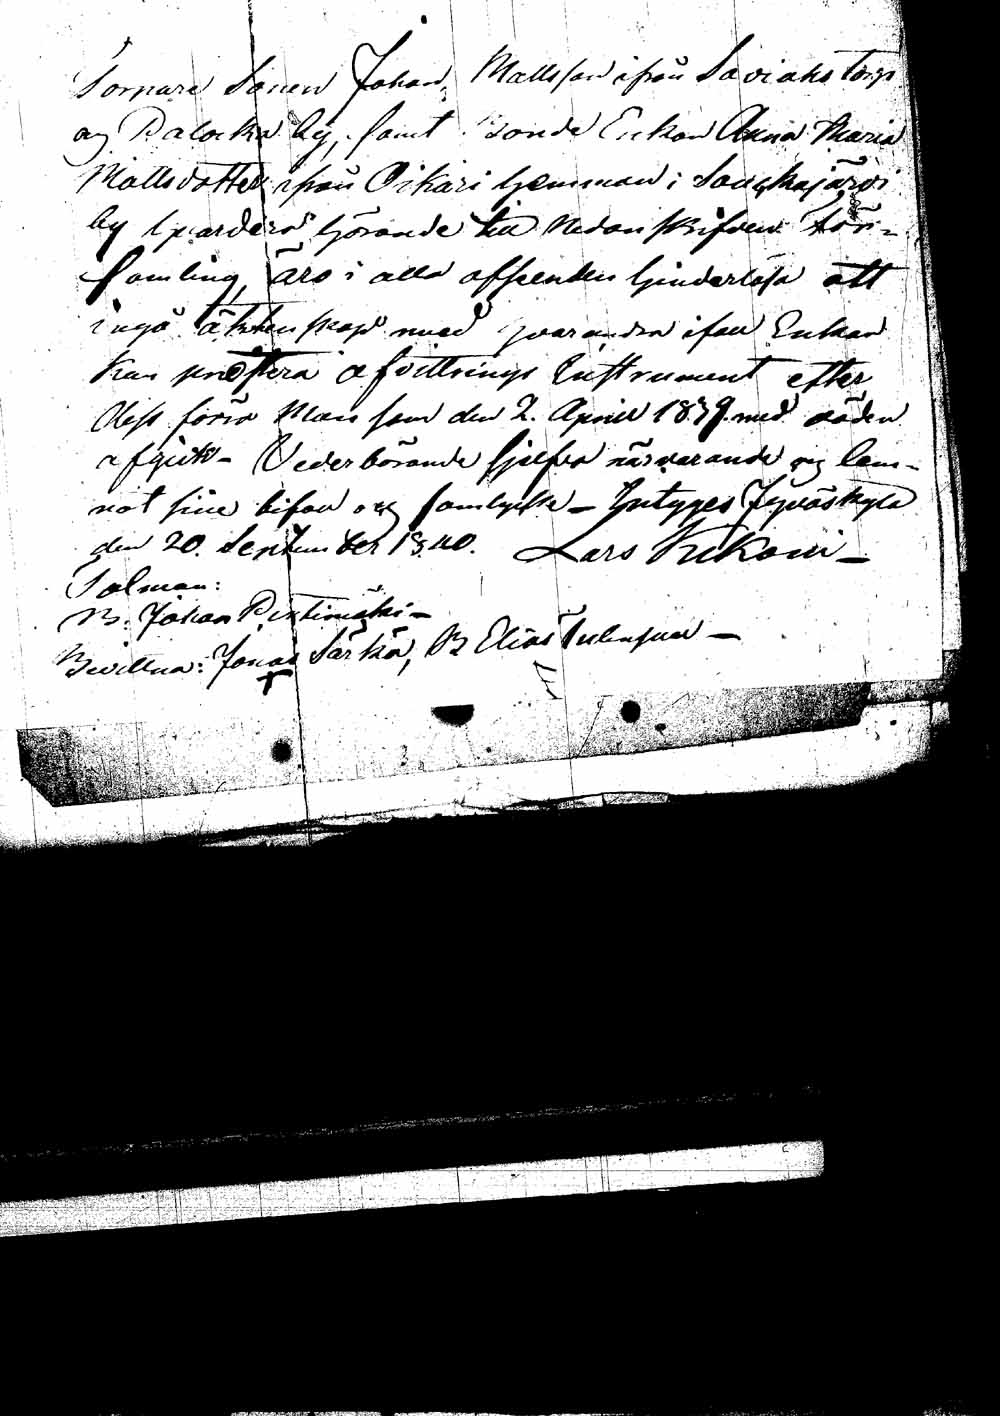 Torpare Sonen Johan Mattsson ifrån Saviaks torp
og Palocka by, samt Bonde Enkan Anna Maria
Mattsdotter ifrån Oikari hemman i
by hvardera hörande till nedanskrifven För-
samling, äro i alla afseenden hinderlösa att
ingå äktenskap med hvarandra ifall Enkan
kan prestera afvittrings Instrument efter
dess förra Man som den 2. April 1839 med döden
afgick – Vederbörande sjelfva närvarande og lem-
nat sine bifall og samtycke – Intygges Jyväskylä
den 20. September 1840. Lars Kukoin –
Talman:
B. Johan
Bevittna: Jonas Särkä, B Elias